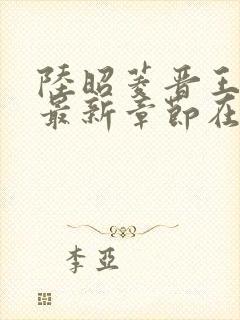 陸昭菱晋王
最新章節在
李亞